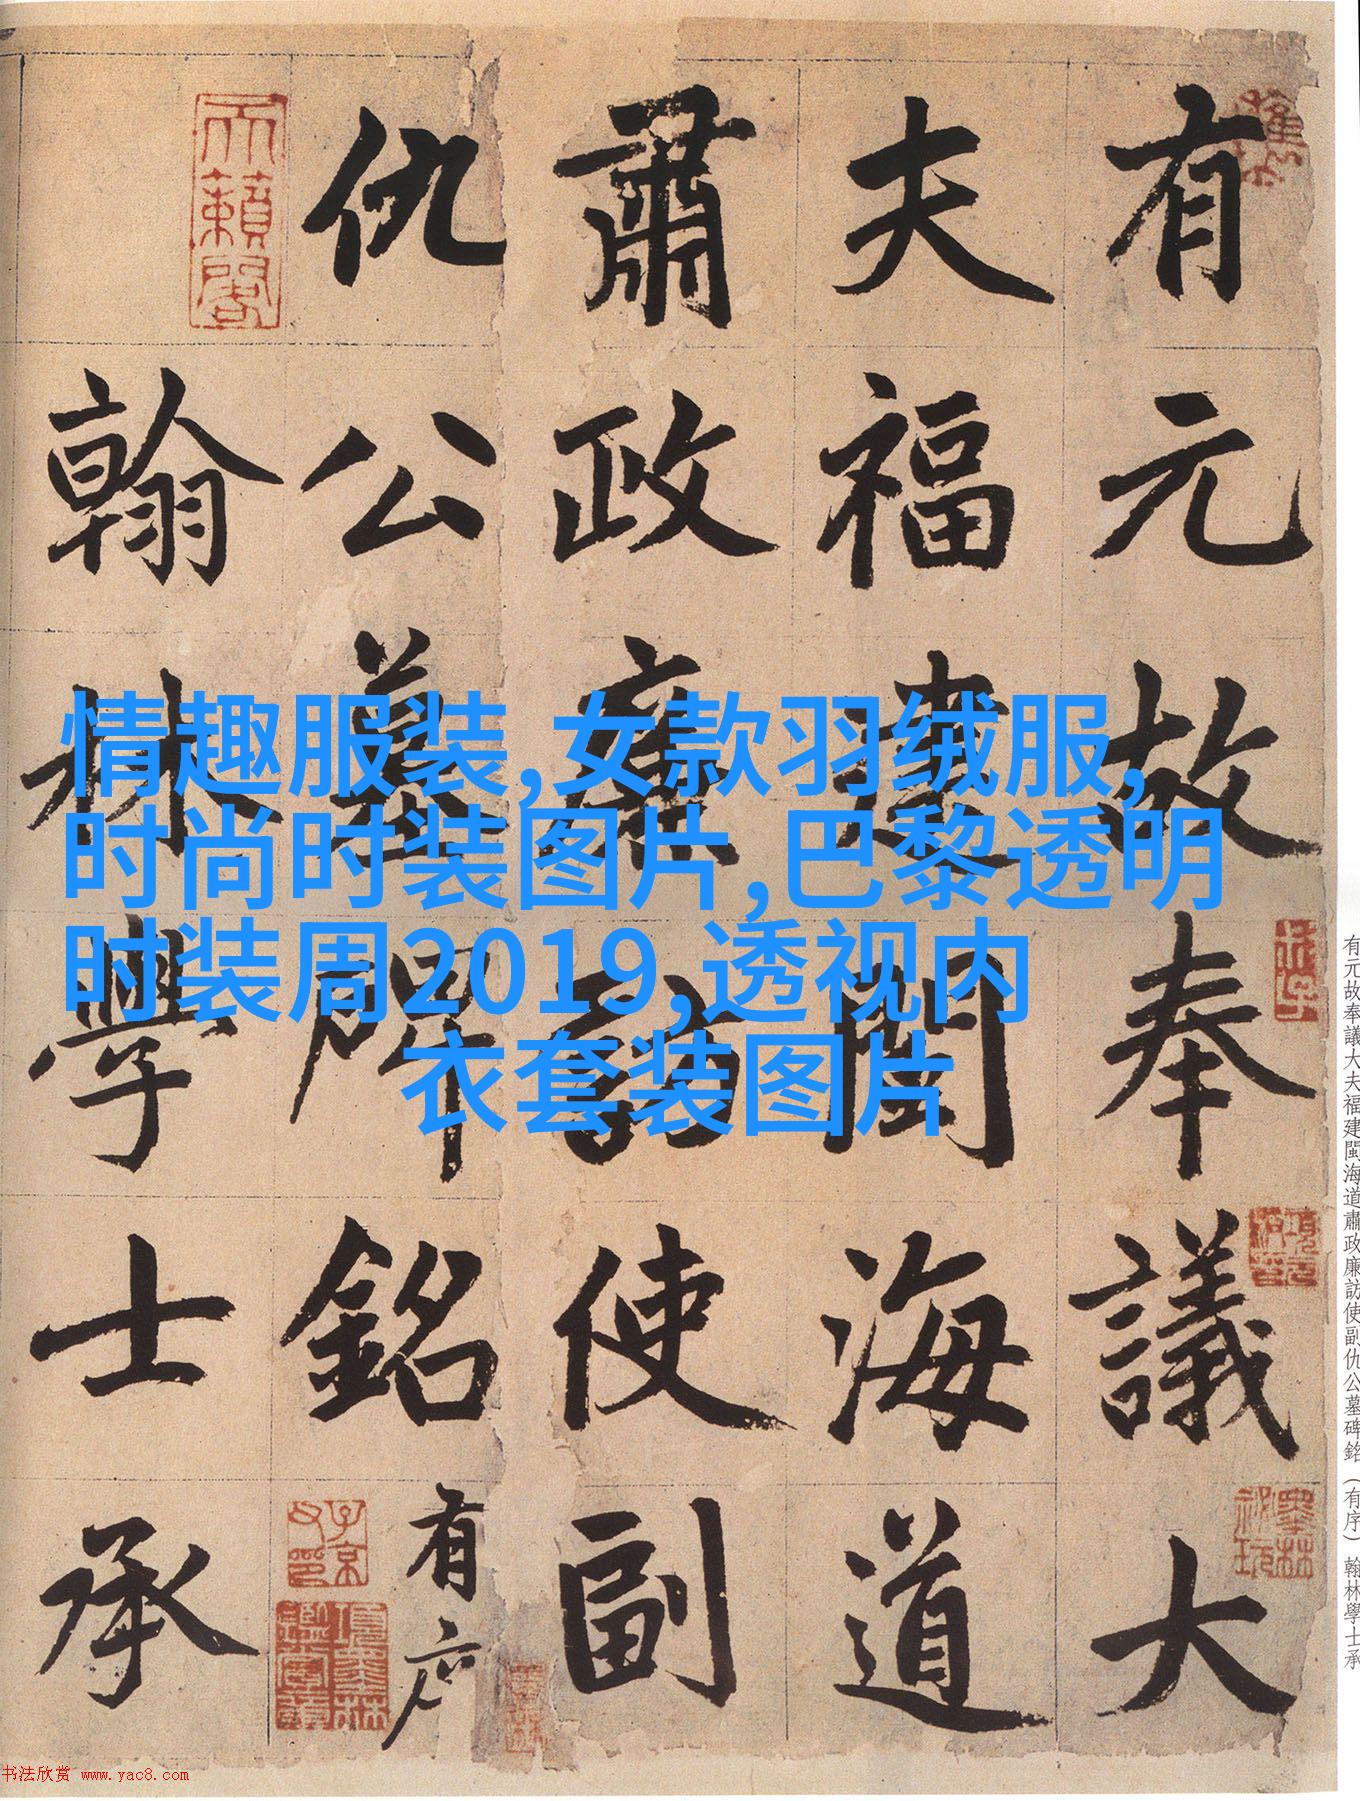 有元故奉議大
夫福建閩海道
肅政廉訪使副
仇公墓碑銘有序
翰林學士承
天籟閣
子京父印
項墨林鑑賞章
墨林祕玩
情趣服装,女款羽绒服,
时尚时装图片,巴黎透明
时装周2019,透视内
衣套装图片
有元故奉議大夫福建閩海道肅政廉訪使副仇公墓碑銘(有序) 翰林學士承
书法欣赏 www.yac8.com